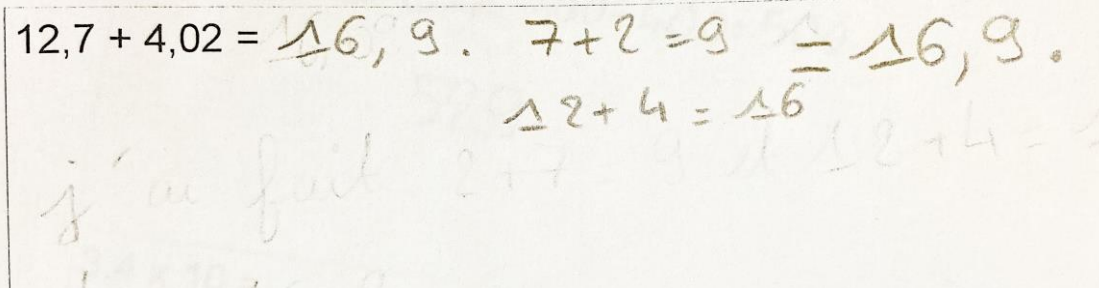 12,7 + 4,02 = 16, 9. 7+2 =9 = 16, 9.
12+ 4 = 16
j'ai fait 2+7 = 9 et 12+4 =